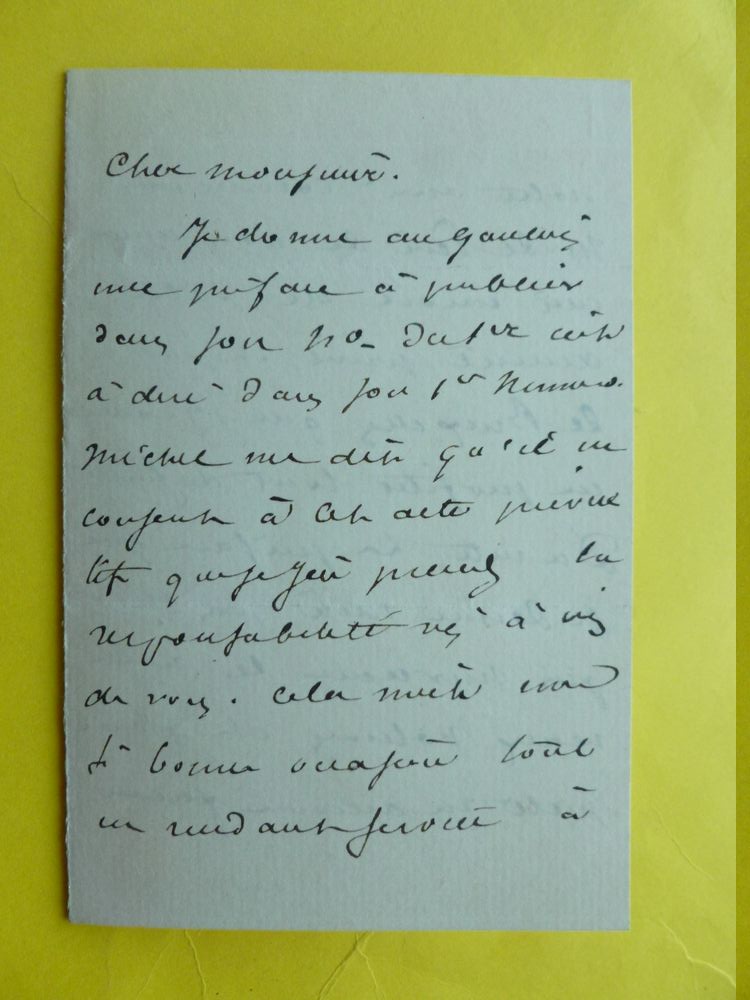 Cher monsieur.
Je donne au Gaulois
une préface à publier
dans son No du 1er c'est
à dire dans son 1er Numero.
Michel me dit qu'il ne
consent à cet acte
que si j'en prends la
responsabilité vis à vis
de vous. Cela m'est une
si bonne occasion tout
en rendant service à